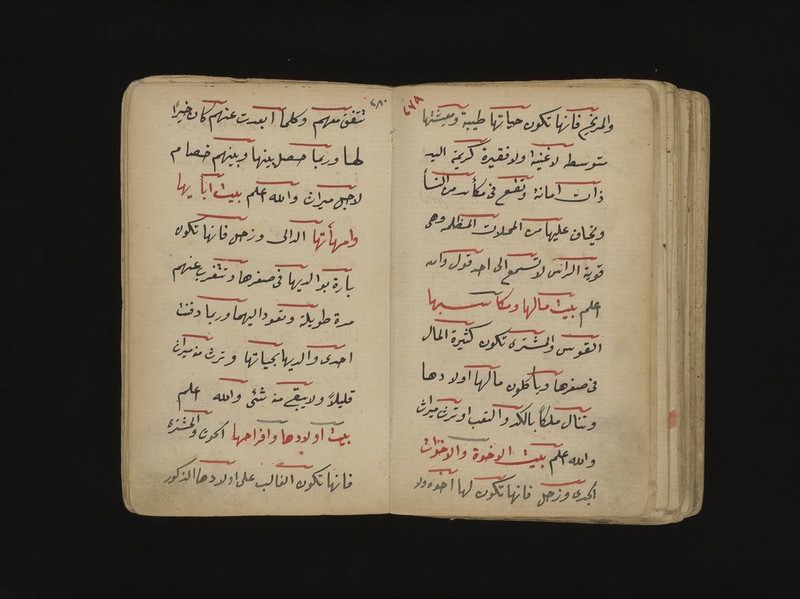 ٤٧٩
والمريخ فانها تكون حياتها طيبة ومعيشتها
متوسطه لا غنية ولا فقيرة كريمة اليد
ذات امانة وتقع في مكايد من النسا
ويخاف عليها من المحلات المظلمه وهى
قوية الراس لا تسمع الى احد قول والله
اعلم بيت مالها ومكاسبها
القوس والمشترى تكون كثيرة المال
فى صغرها وياكلون مالها اولادها
وتنال ملكاً بالكد والتعب او ترث ميراث
والله اعلم بيت الاخوة والاخوات
الجدى وزحل فانها تكون لها اخوه ولا
٤٨٠
تتفق معهم وكلما ابعدت عنهم كان خيراً
لها وربما حصل بينها وبينهم خصام
لاجل ميراث والله اعلم بيت ابايها
وامهاتها الدالى وزحل فانها تكون
بارة بوالديها فى صغرها وتتغرب عنهم
مدة طويلة وتعود اليهما وربما دفنت
احدى والديها بحياتها وترث منه ميراث
قليلاً ولا يبقى منه شئ والله اعلم
بيت اولادها وافراحها الحوت والمشترى
فانها تكون الغالب على اولادها الذكور